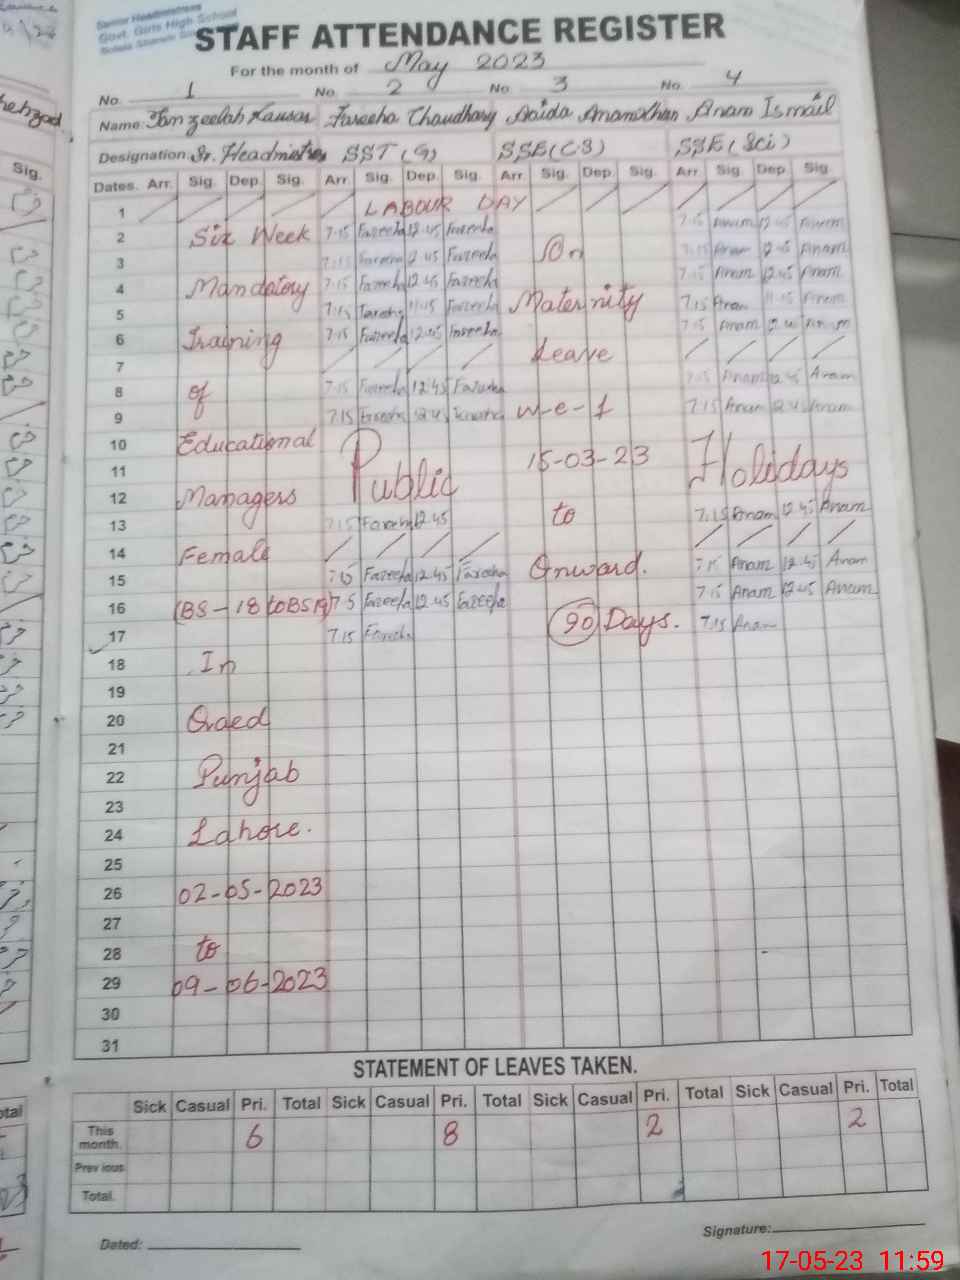 Senior Headmistress
Govt. Girls High School
STAFF ATTENDANCE REGISTER
For the month of May 2023
No. 1 No. 2 No. 3 No. 4
Name: Tanzeelah Kausar Fareeha Chaudhary Anam Ismail
Designation: Sr. Headmistress SST (G) SSE (CS) SSE (Sci)
Dates. Arr. Sig. Dep. Sig. Arr. Sig. Dep. Sig. Arr. Sig. Dep. Sig. Arr. Sig. Dep. Sig.
1 LABOUR DAY
2 Six Week 7.15 Fareeha 12.45 Fareeha 7.15 Anam 12.45 Anam
3 7.15 Fareeha 12.45 Fareeha On 7.15 Anam 12.45 Anam
4 Mandatory 7.15 Fareeha 12.45 Fareeha 7.15 Anam 12.45 Anam
5 7.15 Fareeha 11.15 Fareeha Maternity 7.15 Anam 11.15 Anam
6 Training 7.15 Fareeha 12.45 Fareeha 7.15 Anam 12.45 Anam
7 Leave
8 of 7.15 Fareeha 12.45 Fareeha 7.15 Anam 12.45 Anam
9 7.15 Fareeha 12.45 Fareeha w-e-f 7.15 Anam 12.45 Anam
10 Educational
11 Public 15-03-23 Holidays
12 Managers
13 7.15 Fareeha 12.45 to 7.15 Anam 12.45 Anam
14 Female
15 7.15 Fareeha 12.45 Fareeha Onward. 7.15 Anam 12.45 Anam
16 (BS-18 to BS19) 7.15 Fareeha 12.45 Fareeha 7.15 Anam 12.45 Anam
17 7.15 Fareeha 90 Days. 7.15 Anam
18 In
19
20 Qaed
21
22 Punjab
23
24 Lahore.
25
26 02-05-2023
27
28 to
29 09-06-2023
30
31
STATEMENT OF LEAVES TAKEN.
Sick Casual Pri. Total Sick Casual Pri. Total Sick Casual Pri. Total Sick Casual Pri. Total
This month. 6 8 2 2
Previous
Total.
Dated: Signature:
17-05-23 11:59